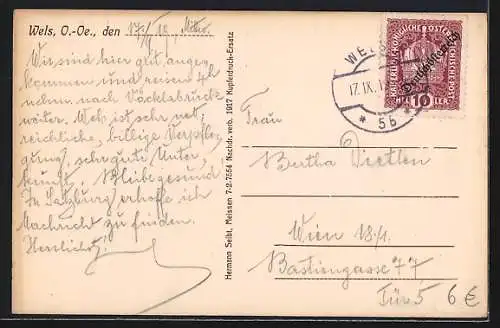 Wels, O.-Oe., den 17./IX 19 Mittw.
Wir sind hier gut ange
kommen und reisen 4h
nachm. nach Vöcklabruck
weiter. Wels ist sehr nett,
reichliche, billige Verpfle
gung, sehr gute Unter
kunft. Bleib gesund,
In Salzburg erhoffe ich
Nachricht zu finden.
Herzlichst
Hermann Seibt, Meissen 7-2-7654 Nachdr. verb. 1917 Kupferdruck-Ersatz
WELS
17.IX.19
* 5b *
KAISERLICHE KÖNIGLICHE ÖSTERREICHISCHE POST
Deutschösterreich
HELLER 10
Frau
Bertha
Wien 18/1.
Bastiengasse 77,
Tür 5
6 €